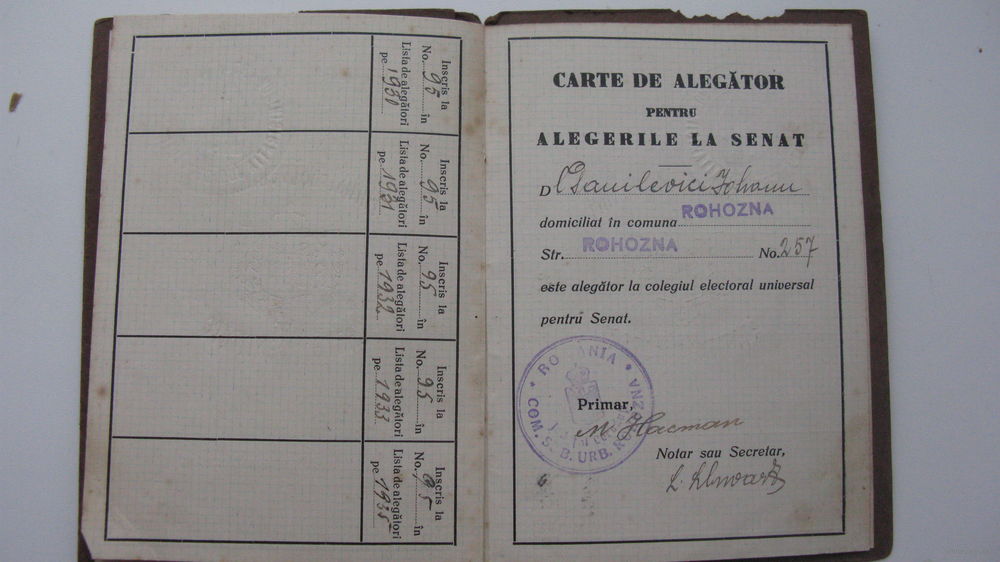 Inscris la
No. 95 în
Lista de alegători
pe 1931
Inscris la
No. 95 în
Lista de alegători
pe 1931
Inscris la
No. 95 în
Lista de alegători
pe 1932
Inscris la
No. 95 în
Lista de alegători
pe 1933
Inscris la
No. 95 în
Lista de alegători
pe 1935
CARTE DE ALEGĂTOR
PENTRU
ALEGERILE LA SENAT
D Danilevici Johann
domiciliat în comuna ROHOZNA
Str. ROHOZNA No. 257
este alegător la colegiul electoral universal
pentru Senat.
ROMANIA
COM. SUB. URB. ROHOZNA
Primar,
N. Hacman
Notar sau Secretar,